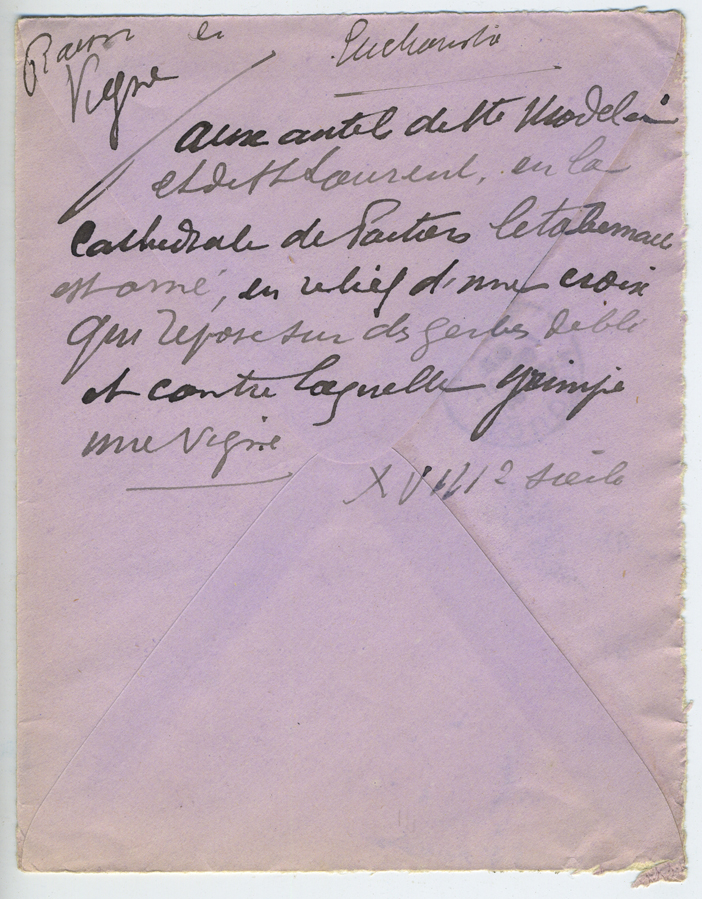 Raisin et Eucharistie
Vigne
aux autels de Ste Madeleine
et de St Laurent, en la
Cathédrale de Poitiers le tabernacle
est orné, en relief d'une croix
qui repose sur des gerbes de blé
et contre laquelle grimpe
une vigne
XVIIIe siècle